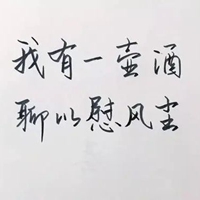 我有一壶酒
聊以慰风尘